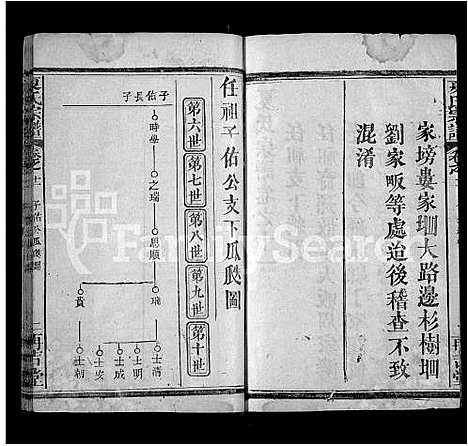 家塝婁家垇大路邊杉樹垇
劉家畈等處迨後稽查不致
混淆
任祖子佑公支下瓜瓞圖
第六世
第七世
第八世
第九世
第十世
子佑長子
時學
之瑞
思順
貴
士清
士明
士成
士安
士朝
氏宗譜
FamilySearch